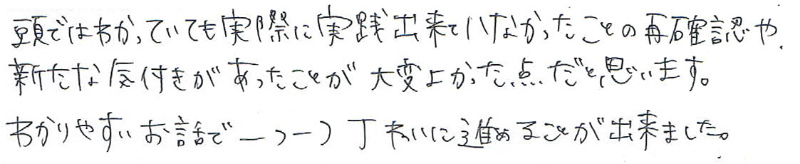 頭ではわかっていても実際に実践出来ていなかったことの再確認や、
新たな気付きがあったことが大変よかった点だと思います。
わかりやすいお話で一つ一つ丁ねいに進めることが出来ました。